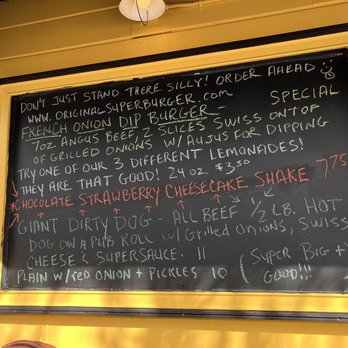 DON'T JUST STAND THERE SILLY! ORDER AHEAD
WWW. ORIGINALSUPERBURGER.com
FRENCH ONION DIP BURGER - SPECIAL
7oz ANGUS BEEF, 2 SLICES SWISS ONTOP
OF GRILLED ONIONS W/AUJUS FOR DIPPING
TRY ONE OF OUR 3 DIFFERENT LEMONADES!
THEY ARE THAT GOOD! 24 oz. $3.50
*CHOCOLATE STRAWBERRY CHEESECAKE SHAKE 775
GIANT DIRTY DOG - ALL BEEF 1/2 LB. HOT
DOG ON A PUB ROLL w/ Grilled Onions, Swiss
CHEESE & SUPERSAUCE. 11 (SUPER BIG +
PLAIN w/red ONION + PICKLES 10 GOOD!!!